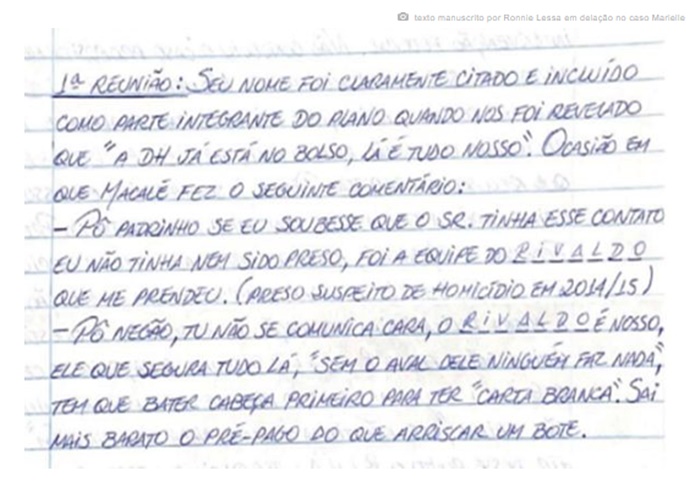 texto manuscrito por Ronnie Lessa em delação no caso Marielle
1ª REUNIÃO: SEU NOME FOI CLARAMENTE CITADO E INCLUÍDO
COMO PARTE INTEGRANTE DO PLANO QUANDO NOS FOI REVELADO
QUE "A DH JÁ ESTÁ NO BOLSO, LÁ É TUDO NOSSO". OCASIÃO EM
QUE MACALÉ FEZ O SEGUINTE COMENTÁRIO:
- PÔ PADRINHO SE EU SOUBESSE QUE O SR. TINHA ESSE CONTATO
EU NÃO TINHA NEM SIDO PRESO, FOI A EQUIPE DO RIVALDO
QUE ME PRENDEU. (PRESO SUSPEITO DE HOMICÍDIO EM 2014/15)
- PÔ NEGÃO, TU NÃO SE COMUNICA CARA, O RIVALDO É NOSSO,
ELE QUE SEGURA TUDO LÁ, "SEM O AVAL DELE NINGUÉM FAZ NADA",
TEM QUE BATER CABEÇA PRIMEIRO PARA TER "CARTA BRANCA". SAI
MAIS BARATO O PRÉ-PAGO DO QUE ARRISCAR UM BOTE.